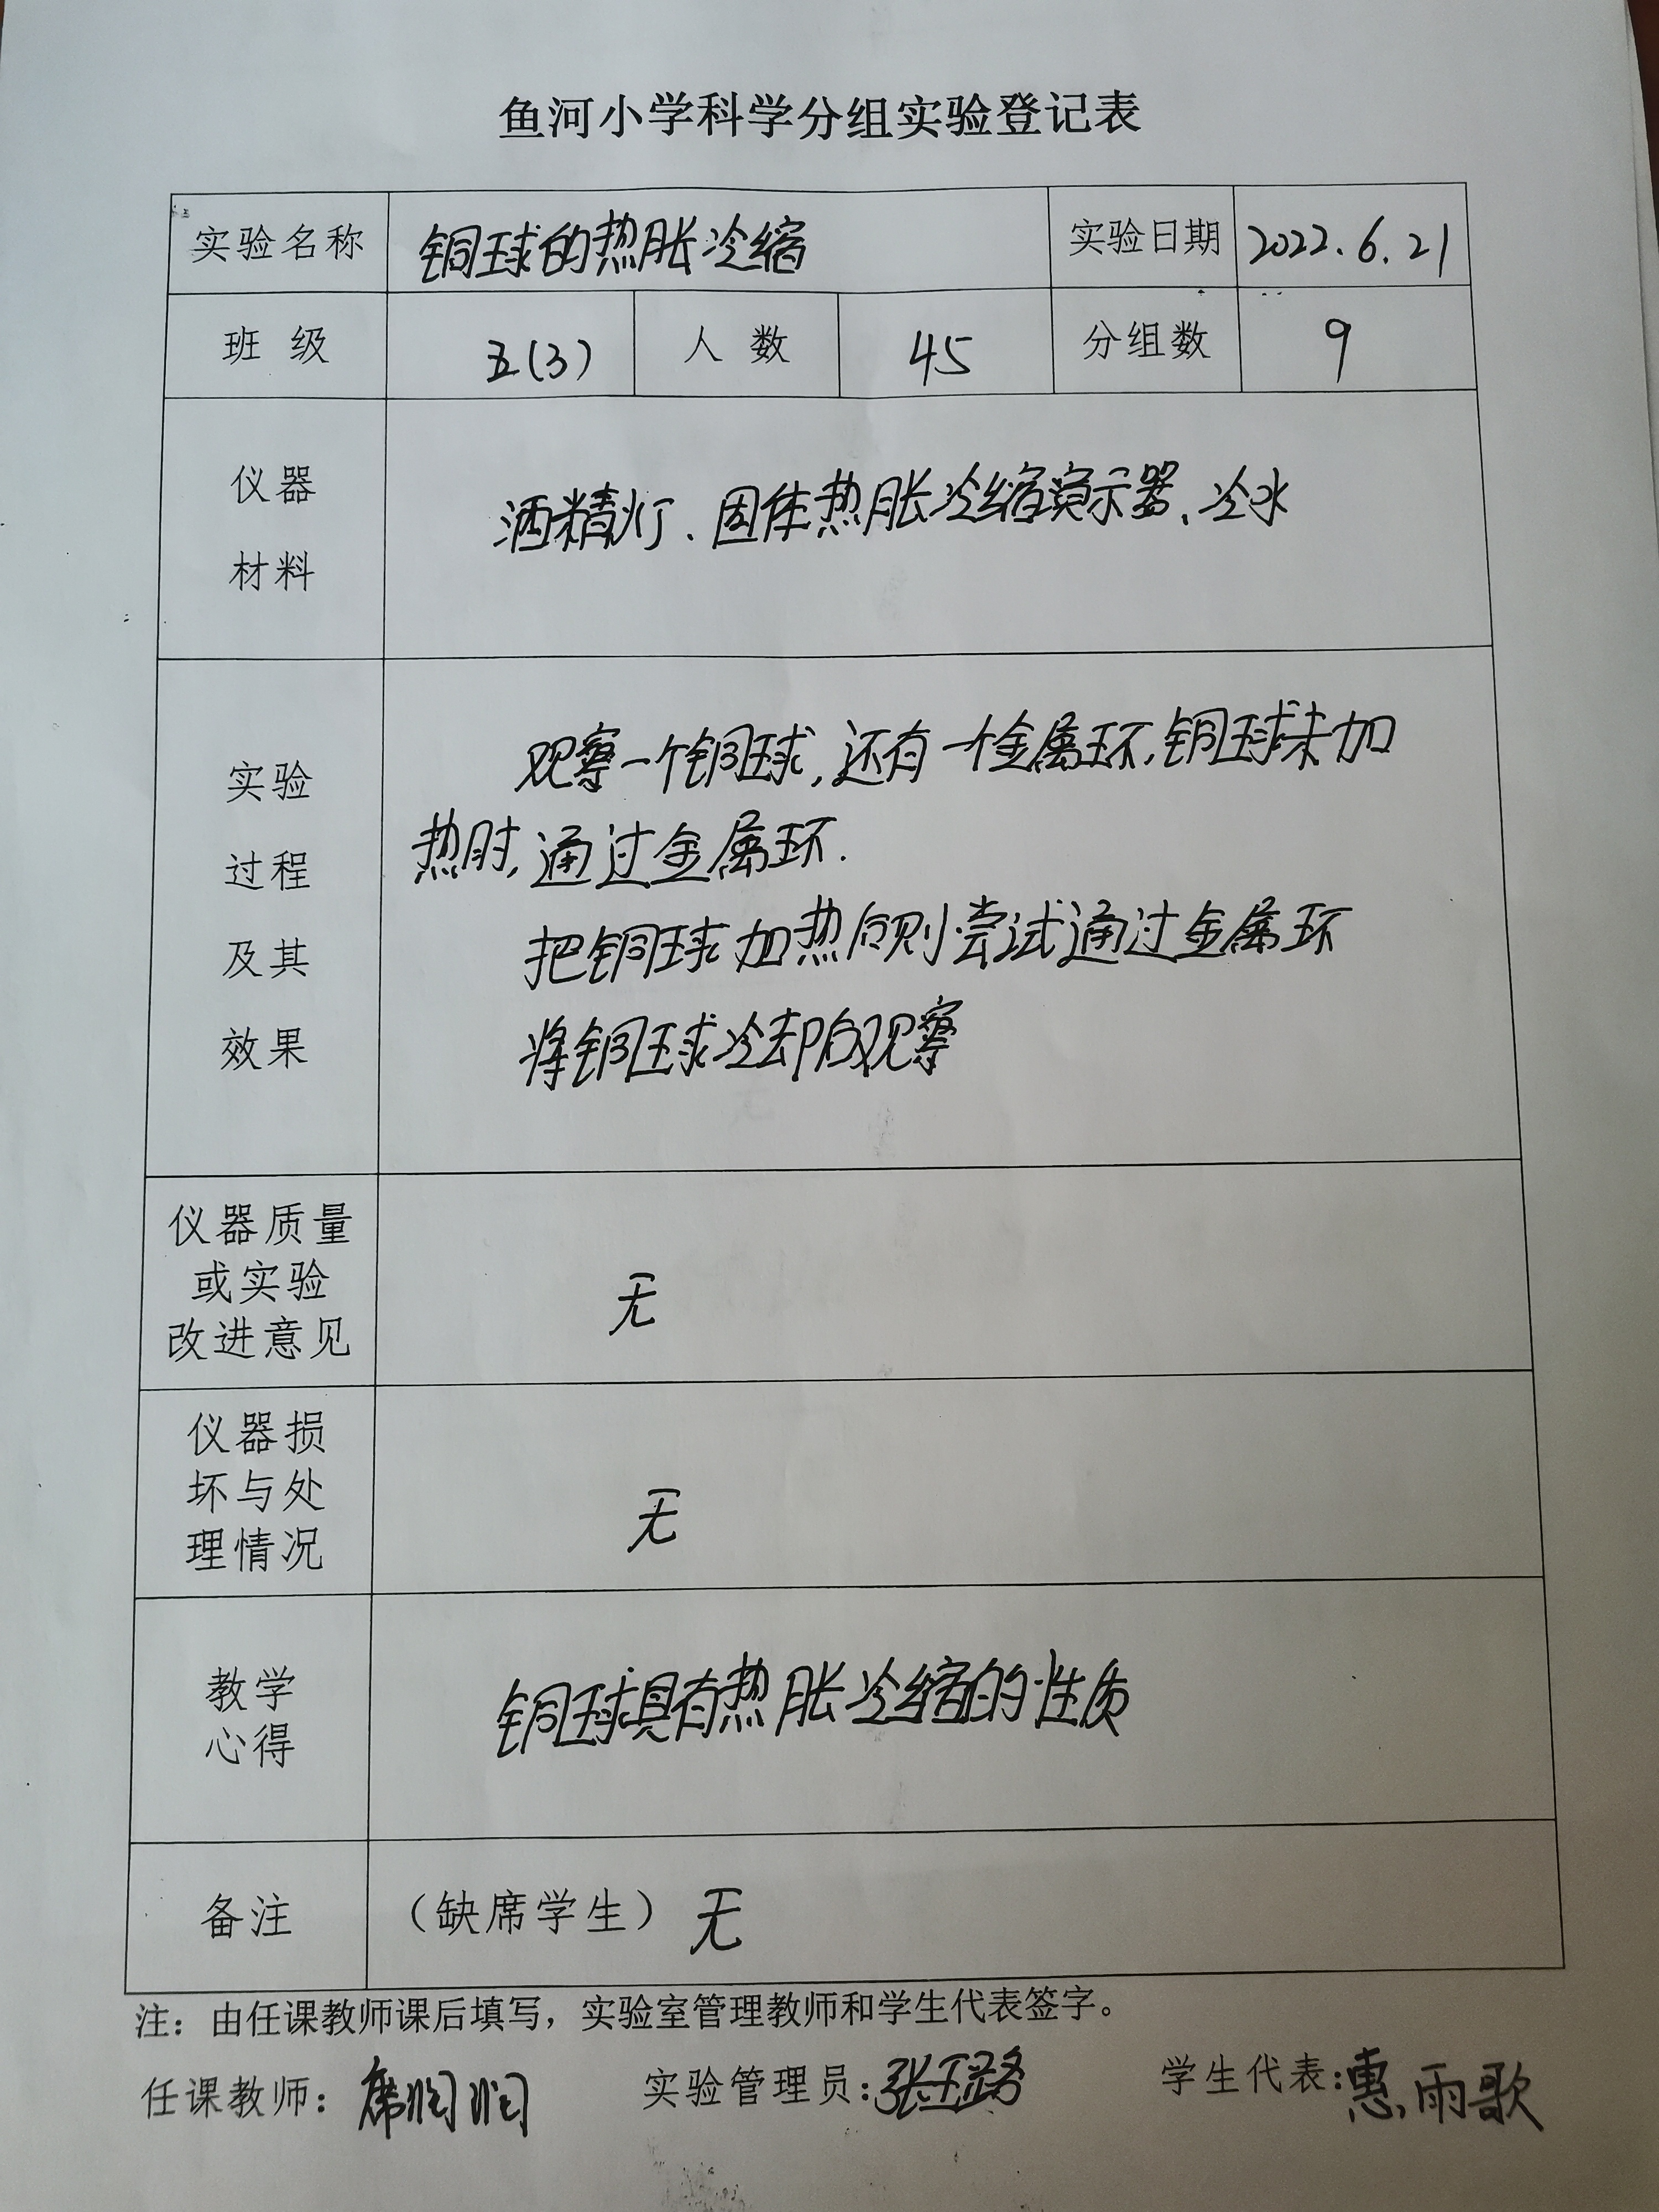 鱼河小学科学分组实验登记表
实验名称 铜球的热胀冷缩 实验日期 2022.6.21
班 级 五(3) 人 数 45 分组数 9
仪器
材料
酒精灯、固体热胀冷缩演示器、冷水
实验
过程
及其
效果
观察一个铜球,还有一个金属环,铜球未加
热时,通过金属环.
把铜球加热 尝试通过金属环
将铜球冷却 观察
仪器质量
或实验
改进意见
无
仪器损
坏与处
理情况
无
教学
心得
铜球具有热胀冷缩的性质
备注 (缺席学生) 无
注:由任课教师课后填写,实验室管理教师和学生代表签字。
任课教师:席润润 实验管理员:张玉路 学生代表:惠雨歌